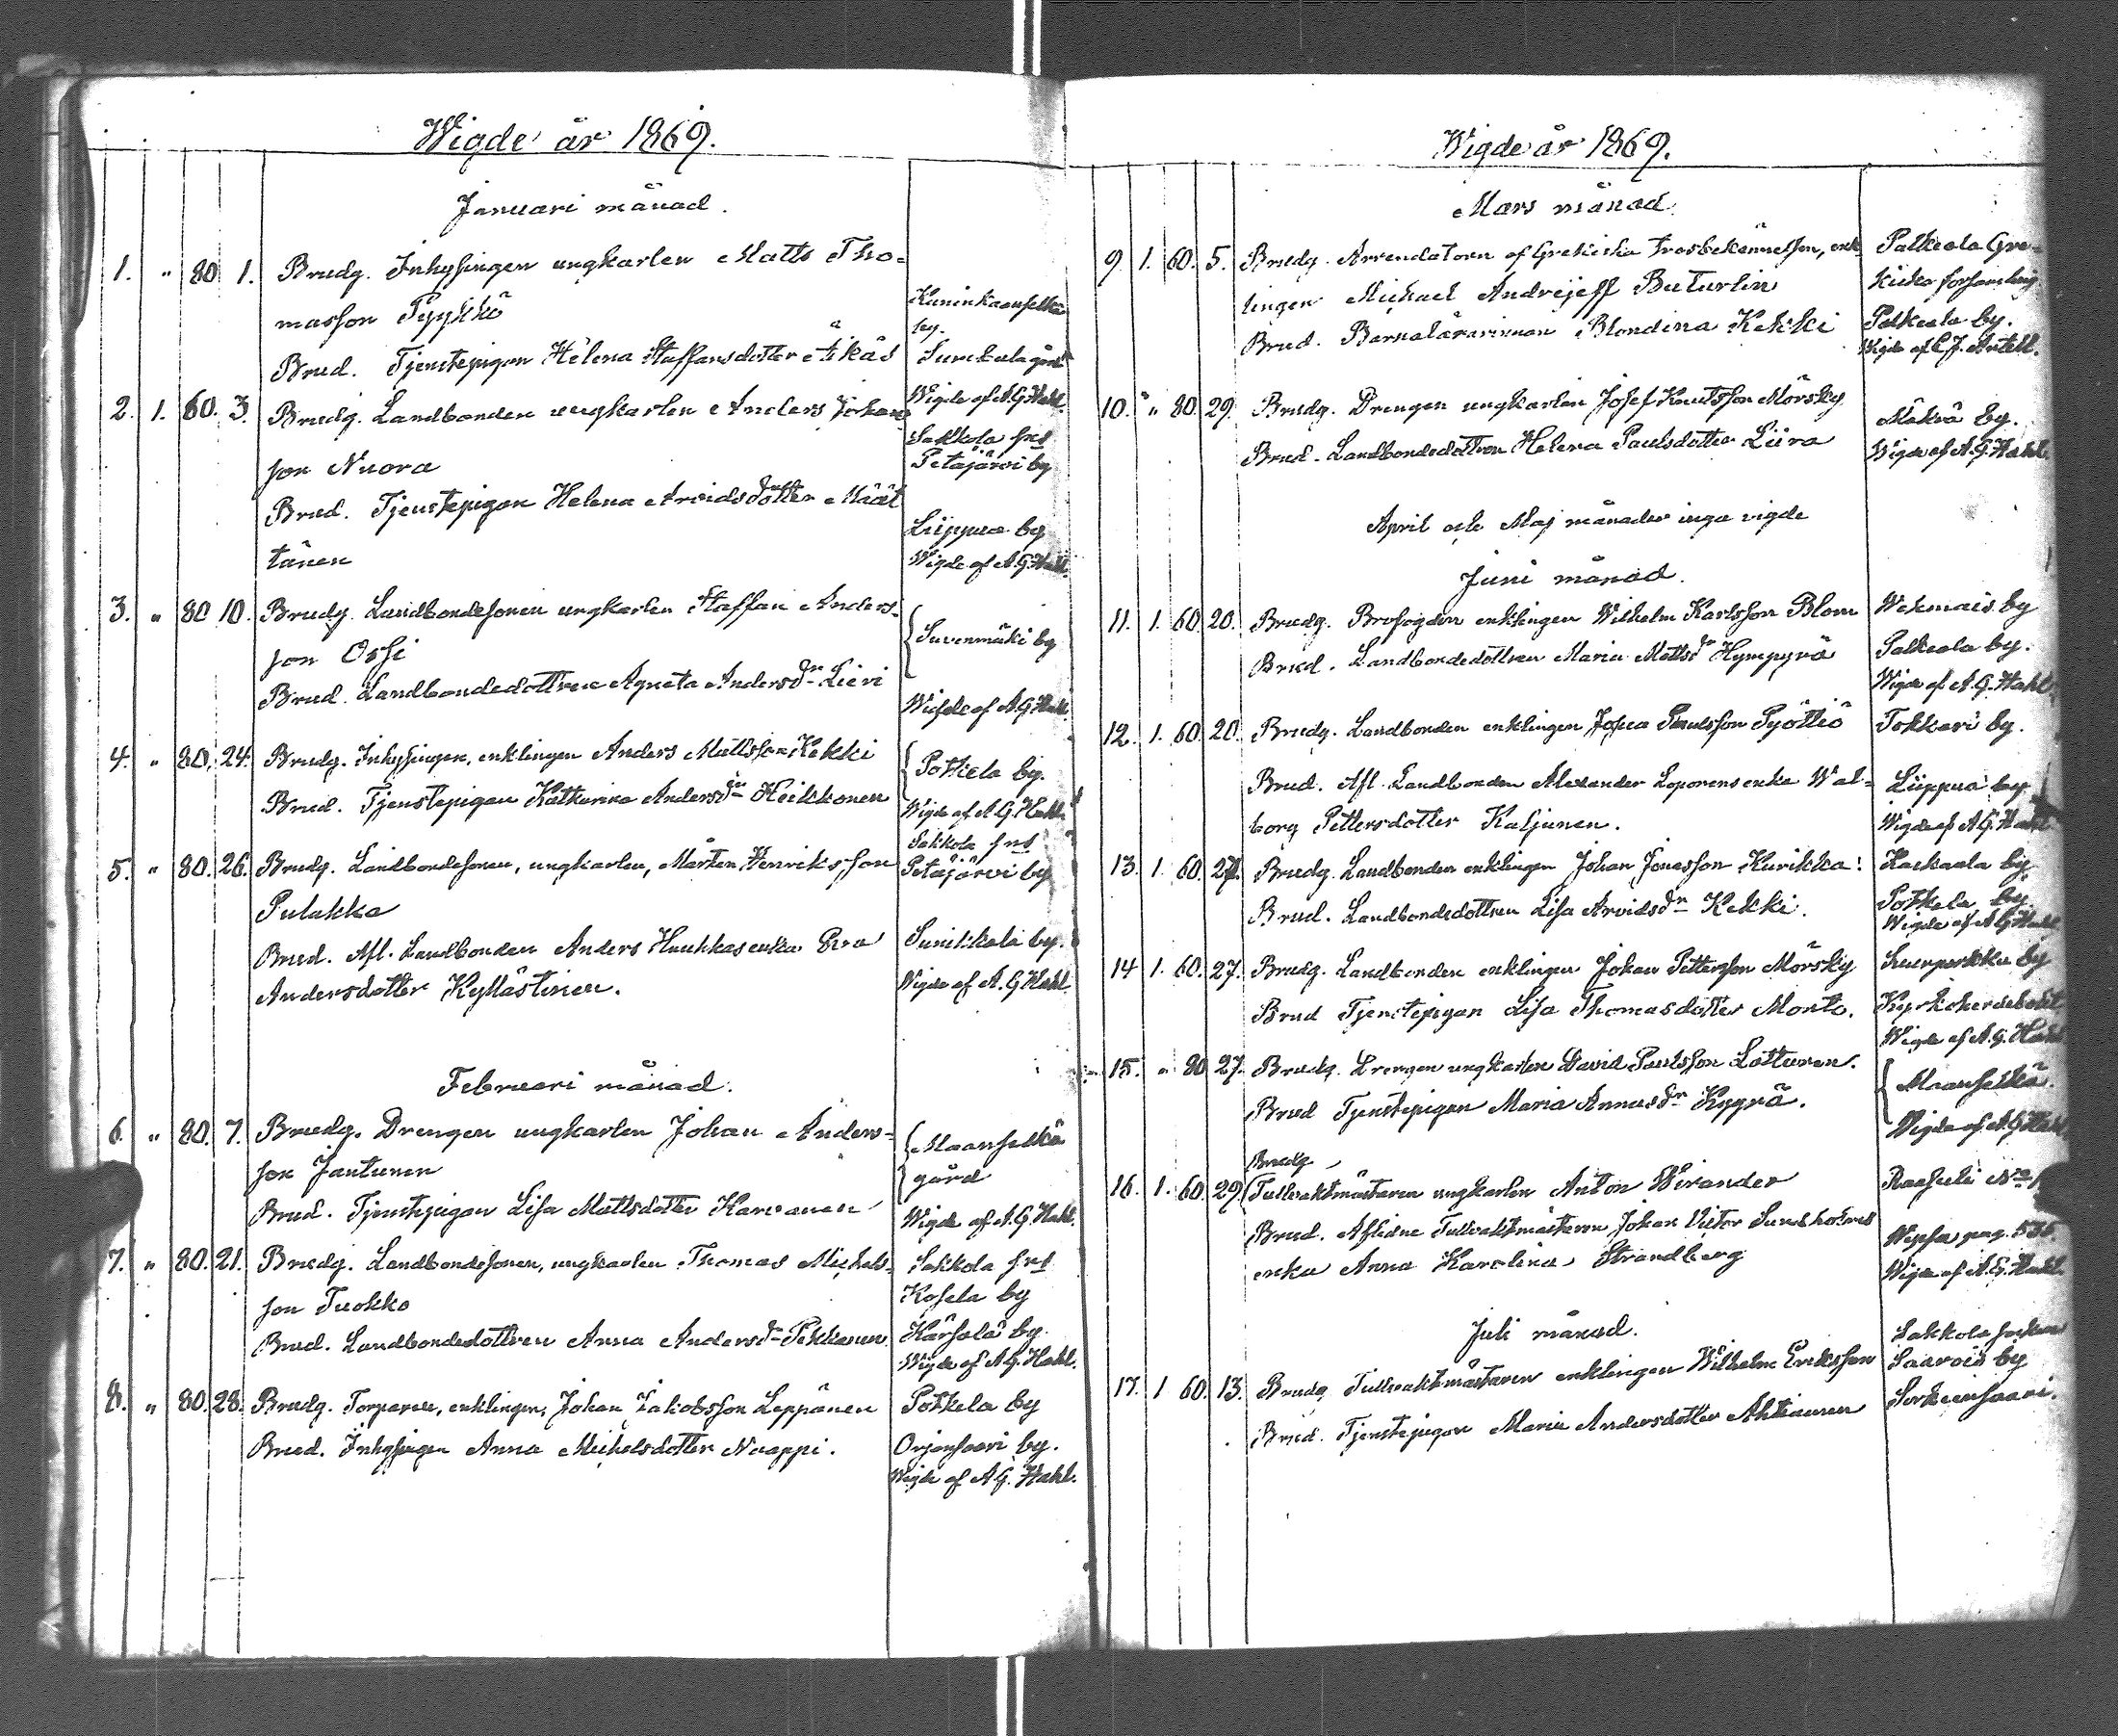 Wigde år 1869.
Januari månad.
1. " 80 1. Brudg. Inhysingen ungkarlen Matts Tho-
masson Pyykkö
Kuninkaanselkä
by.
Brud. Tjenstepigan Helena Staffansdotter Äikäs
Surckula gård
Wigde af A G Hahl.
2. 1. 60. 3. Brudg. Landbonden ungkarlen Anders Johans
son Nuora
Sakkola sns
Petäjärvi by
Brud. Tjenstepigan Helena Arvidsdotter Määt
tänen
Liippua by
Wigde af A G Hahl.
3. " 80 10. Brudg. Landbondesonen ungkarlen Staffan Anders-
son Ossi
Suvenmäki by
Brud. Landbondedottren Agneta Andersdr Lieri
Wigde af A G Hahl.
4. " 80. 24. Brudg. Inhysingen, enklingen Anders Mattsson Kekki
Potkela by.
Brud. Tjenstepigan Katharina Andersdr Heikkonen
Wigde af A G. Hahl.
5. " 80. 26. Brudg. Landbondesonen, ungkarlen, Mårten Henriksson
Pulakka
Sakkola sns
Petäjärvi by
Brud. Afl. Landbonden Anders Huuhkas enka Eva
Andersdotter Kyllästinen.
Sunikkala by.
Wigde af A. G Hahl.
Februari månad.
6. " 80. 7. Brudg. Drengen ungkarlen Johan Anders-
son Jantunen
Maanselkä
gård
Brud. Tjenstepigan Lisa Mattsdotter Karvanen
Wigde af A. G. Hahl.
7. " 80. 21. Brudg. Landbondesonen, ungkarlen Thomas Michels-
son Tuokko
Sakkola sns
Kosela by
Brud. Landbondedottren Anna Andersdr Pekkanen
Kärsälä by.
Wigde af A G. Hahl.
8. " 80. 28. Brudg. Torparen, enklingen, Johan Jakobsson Leppänen
Potkela by
Brud. Inhysingen Anna Michelsdotter Naappi.
Orjansaari by.
Wigde af A G. Hahl.
Wigde år 1869.
Mars månad.
9. 1. 60. 5. Brudg. Arrendatorn af Grekiska trosbekännelsen, enk
lingen Michael Andrejeff Buturlin
Palkeala Gre-
kiska församling
Brud. Barnalärarinnan Blondina Kekki
Palkeala by.
Wigde af C J. Antell.
10. " 80 29. Brudg. Drengen ungkarlen Josef Knutsson Mörsky
Brud. Landbondedottren Helena Paulsdotter Liira
Mäkrä by.
Wigde af A. G. Hahl.
April och Maj månader inga vigde
Juni månad.
11. 1. 60. 20. Brudg. Brofogden enklingen Wilhelm Karlsson Blom
Wekmais by
Brud. Landbondedottren Maria Mattsdr Hympyrä
Palkeala by.
Wigde af A. G. Hahl.
12. 1. 60. 20. Brudg. Landbonden enklingen Josua Paulsson Pyöttiö
Tokkari by.
Brud. Afl. Landbonden Alexander Loponens enka Wal-
borg Pettersdotter Kaljunen.
Liippua by
Wigde af A G. Hahl
13. 1. 60. 27. Brudg. Landbonden enklingen Johan Jonasson Kurikka.
Kaskaala by
Brud. Landbondedottren Lisa Arvidsdr Kekki.
Potkela by.
Wigde af A G Hahl
14 1. 60. 27. Brudg. Landbonden enklingen Johan Pettersson Mörsky
by
Brud Tjenstepigan Lisa Thomasdotter Monto.
Wigde af A. G. Hahl
15. " 80 27. Brudg. Drengen ungkarlen David Paulsson Lattunen.
Brud Tjenstepigan Maria Annusdr Kyyrä.
Maanselkä.
Wigde af A G Hahl
16. 1. 60. 29. Brudg
Tullvaktmästaren ungkarlen Anton Wirander
Raasuli No
Brud. Aflidne Tullvaktmästaren Johan Victor Sundholms
enka Anna Karolina Strandberg
Wepsa pag.
Wigde af A. G. Hahl.
Juli månad.
17. 1 60. 13. Brudg Tullvaktmästaren enklingen Wilhelm Eriksson
Sakkola socken
Saarois by
Brud. Tjenstepigan Maria Andersdotter Ahtiainen
Sorkeensaari.